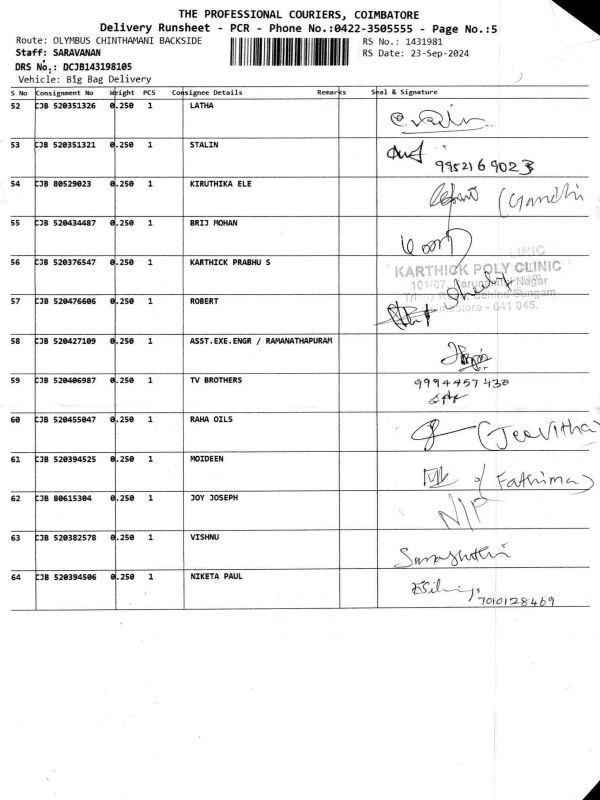 THE PROFESSIONAL COURIERS, COIMBATORE
Delivery Runsheet - PCR - Phone No.:0422-3505555 - Page No.:5
Route: OLYMBUS CHINTHAMANI BACKSIDE RS No.: 1431981
Staff: SARAVANAN RS Date: 23-Sep-2024
DRS No.: DCJB143198105
Vehicle: Big Bag Delivery
S No Consignment No Weight PCS Consignee Details Remarks Seal & Signature
52 CJB 520351326 0.250 1 LATHA
53 CJB 520351321 0.250 1 STALIN
9952169023
54 CJB 80529023 0.250 1 KIRUTHIKA ELE
(Gandhi
55 CJB 520434487 0.250 1 BRIJ MOHAN
56 CJB 520376547 0.250 1 KARTHICK PRABHU S
KARTHICK POLY CLINIC
57 CJB 520476606 0.250 1 ROBERT
641 045.
58 CJB 520427109 0.250 1 ASST.EXE.ENGR / RAMANATHAPURAM
59 CJB 520406987 0.250 1 TV BROTHERS 9994457430
60 CJB 520455047 0.250 1 RAHA OILS
(Jeevitha)
61 CJB 520394525 0.250 1 MOIDEEN
(Fathima)
62 CJB 80615304 0.250 1 JOY JOSEPH
N/P
63 CJB 520382578 0.250 1 VISHNU
64 CJB 520394506 0.250 1 NIKETA PAUL
7010128469